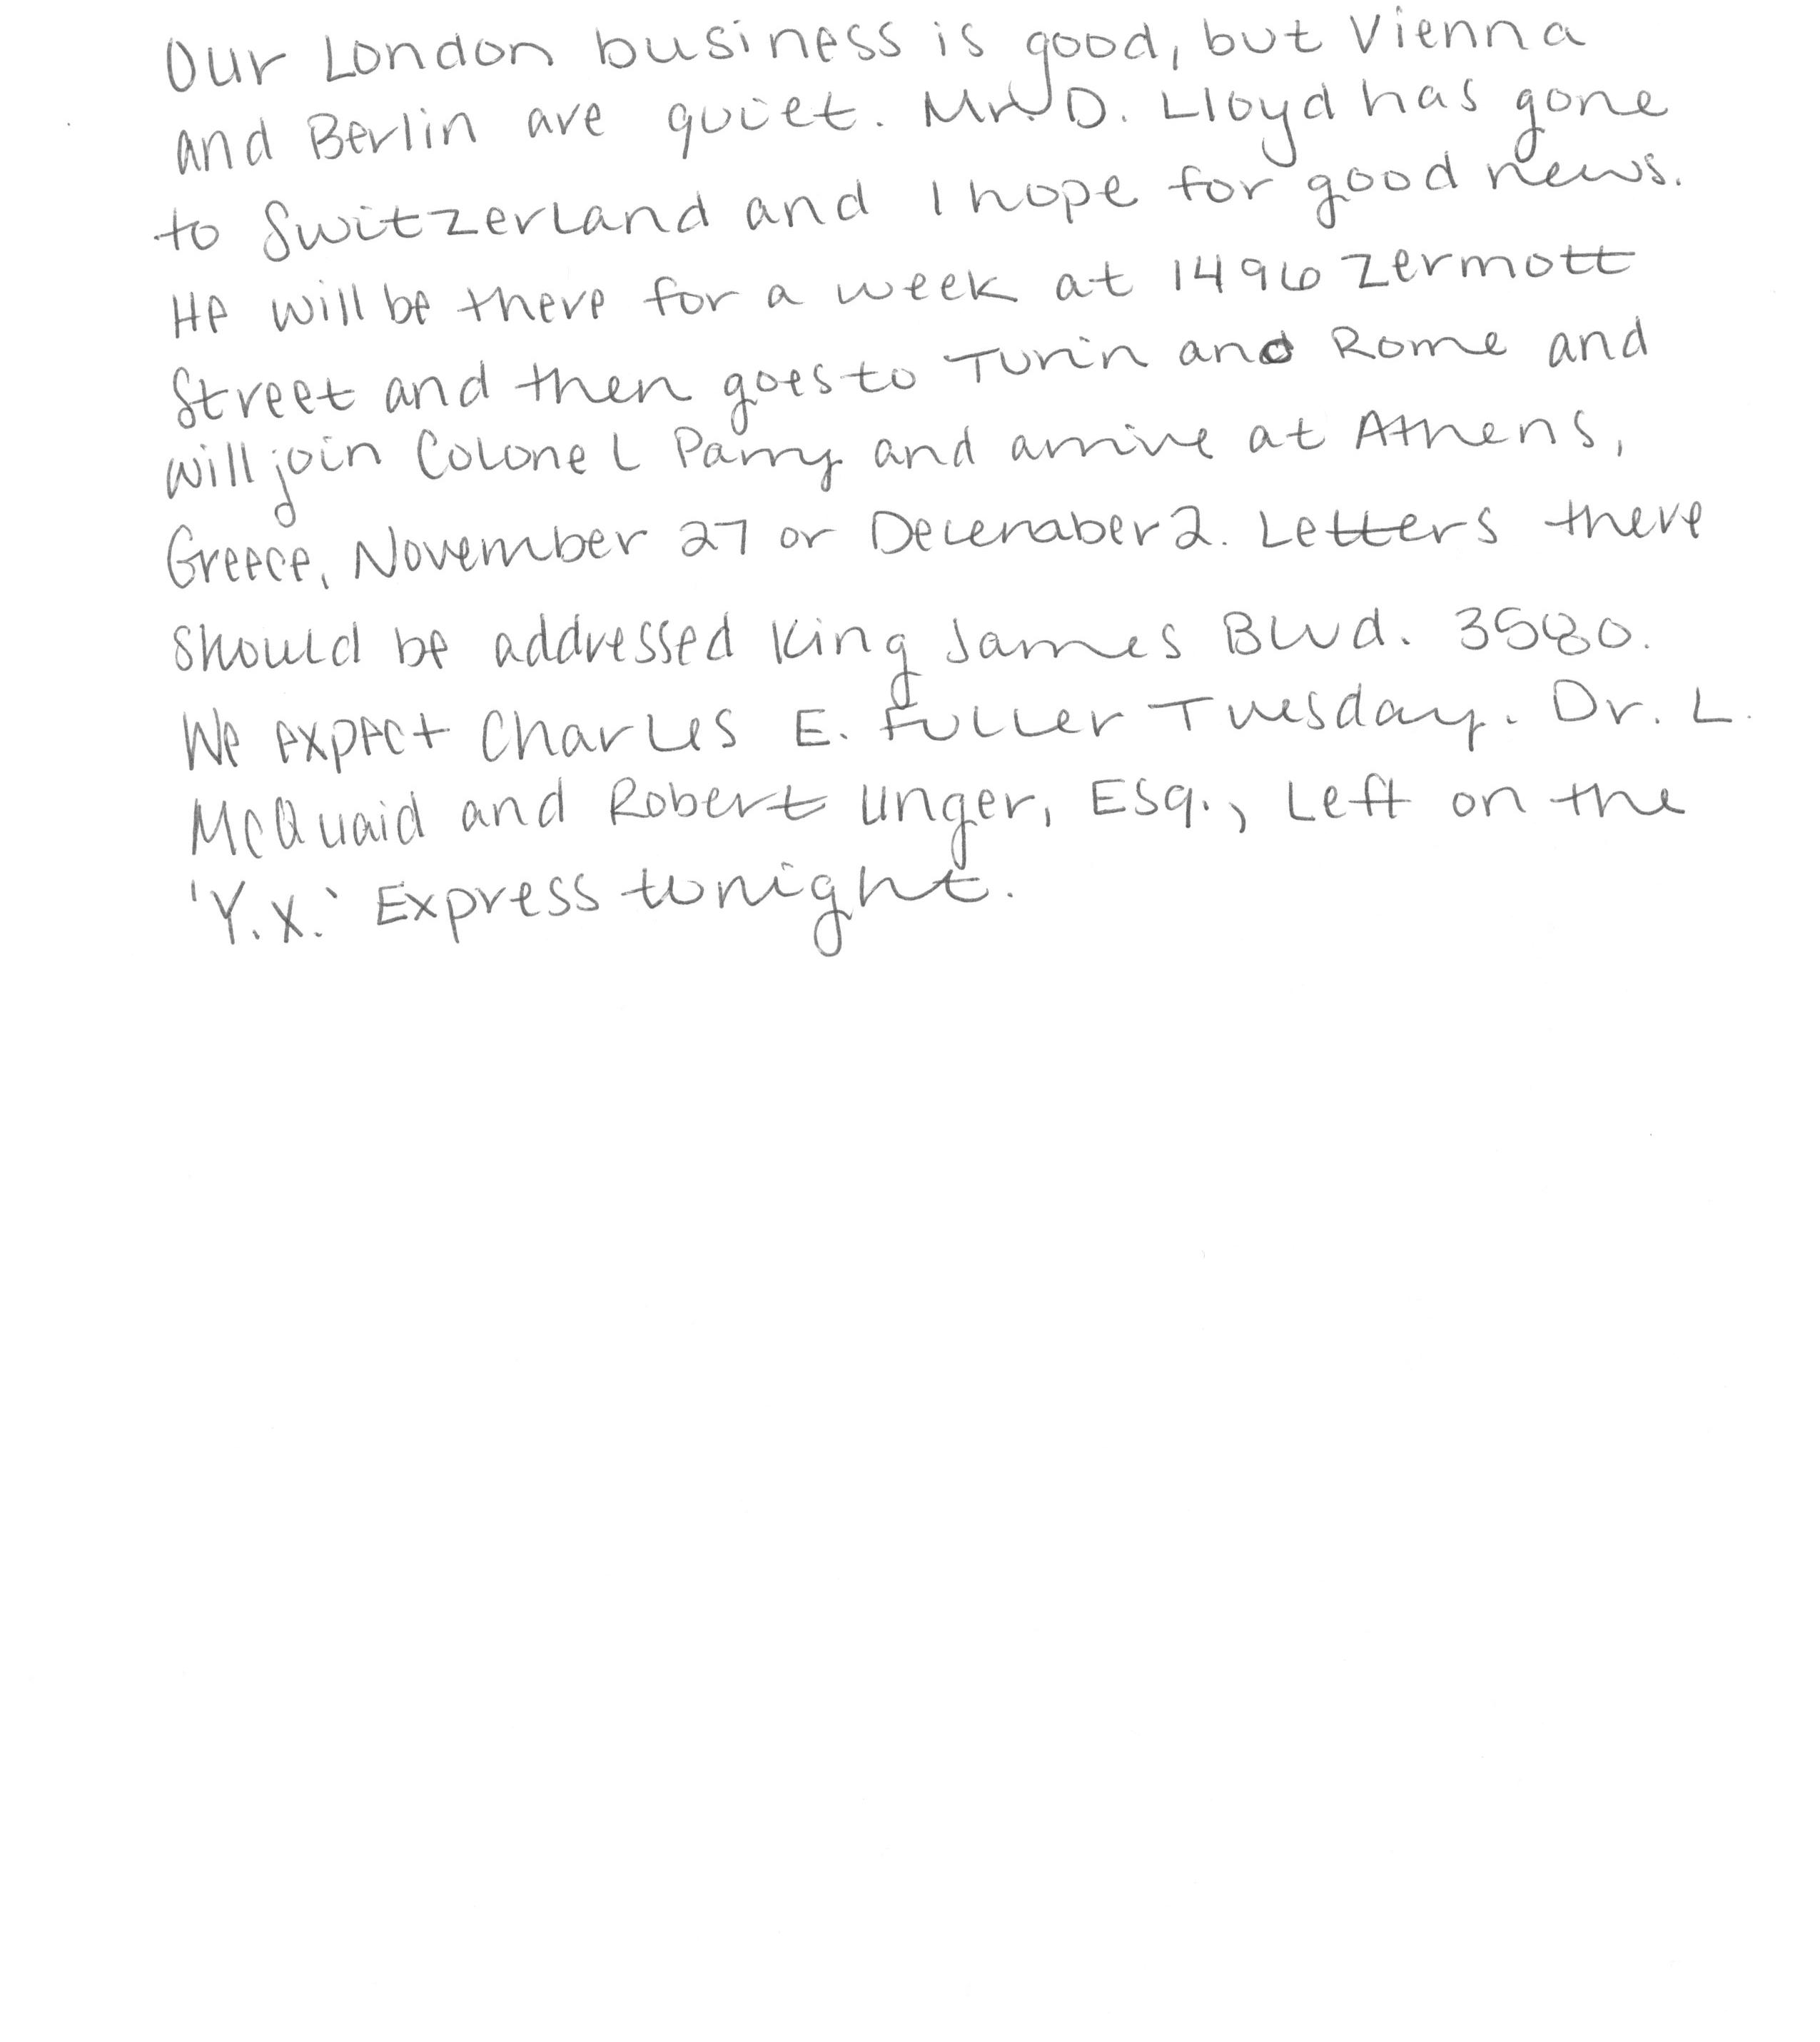 Our London business is good, but Vienna
and Berlin are quiet. Mr. D. Lloyd has gone
to Switzerland and I hope for good news.
He will be there for a week at 1496 Zermott
Street and then goes to Turin and Rome and
will join Colonel Parry and arrive at Athens,
Greece, November 27 or December 2. Letters there
should be addressed King James Blvd. 3580.
We expect Charles E. Fuller Tuesday. Dr. L.
McQuaid and Robert Unger, Esq., left on the
'Y.X.' Express tonight.